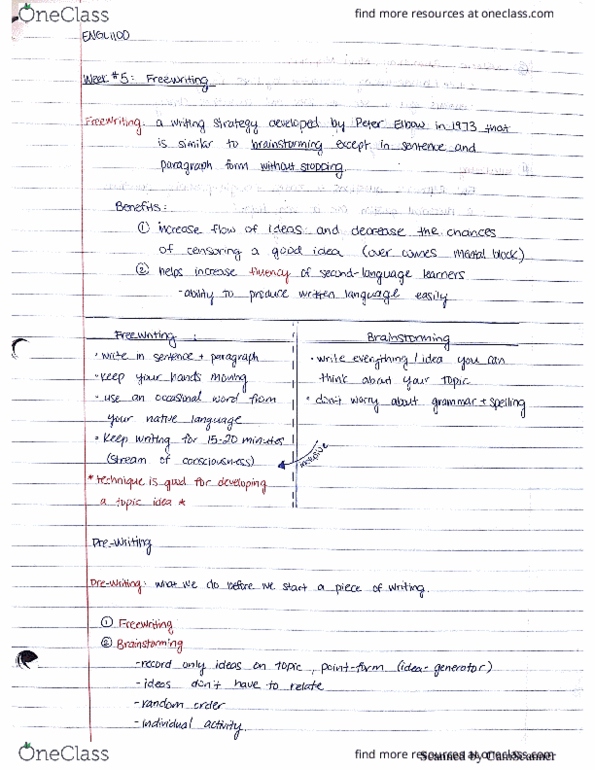 OneClass
find more resources at oneclass.com
ENGL1100
Week #5: Freewriting
Freewriting: a writing strategy developed by Peter Elbow in 1973 that
is similar to brainstorming except in sentence and
paragraph form without stopping.
Benefits:
① increase flow of ideas and decrease the chances
of censoring a good idea (over comes mental block)
② helps increase fluency of second-language learners
-ability to produce written language easily
Freewriting :
• write in sentence + paragraph
• keep your hands moving
• use an occasional word from
your native language
• Keep writing for 15-20 minutes
(stream of consciousness)
* technique is good for developing
a topic idea *
Brainstorming
• write everything / idea you can
think about your topic
• don't worry about grammar + spelling
Pre-Writing
Pre-Writing: what we do before we start a piece of writing.
① Freewriting
② Brainstorming
-record only ideas on topic, point-form (idea-generator)
-ideas don't have to relate
-random order
-individual activity
OneClass
find more resources at oneclass.com
Scanned by CamScanner